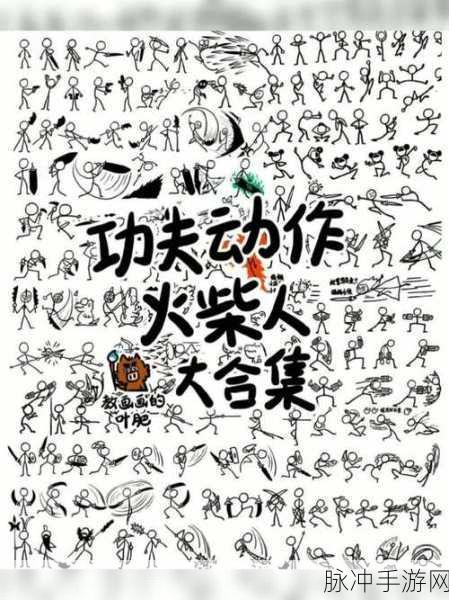 功夫动作
火柴人
大合集
教画画的
叶肥
脉冲手游网